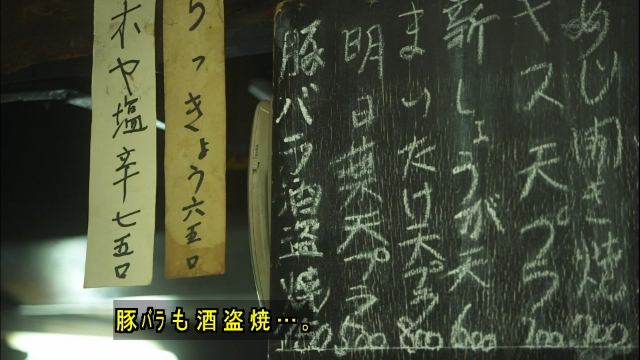 あじ開き焼
キス天プラ
新しょうが天 600
まいたけ天プラ 800
明日葉天プラ 500
豚バラ酒盗焼
らっきょう六五〇
ホヤ塩辛七五〇
豚ﾊﾞﾗも酒盗焼…。